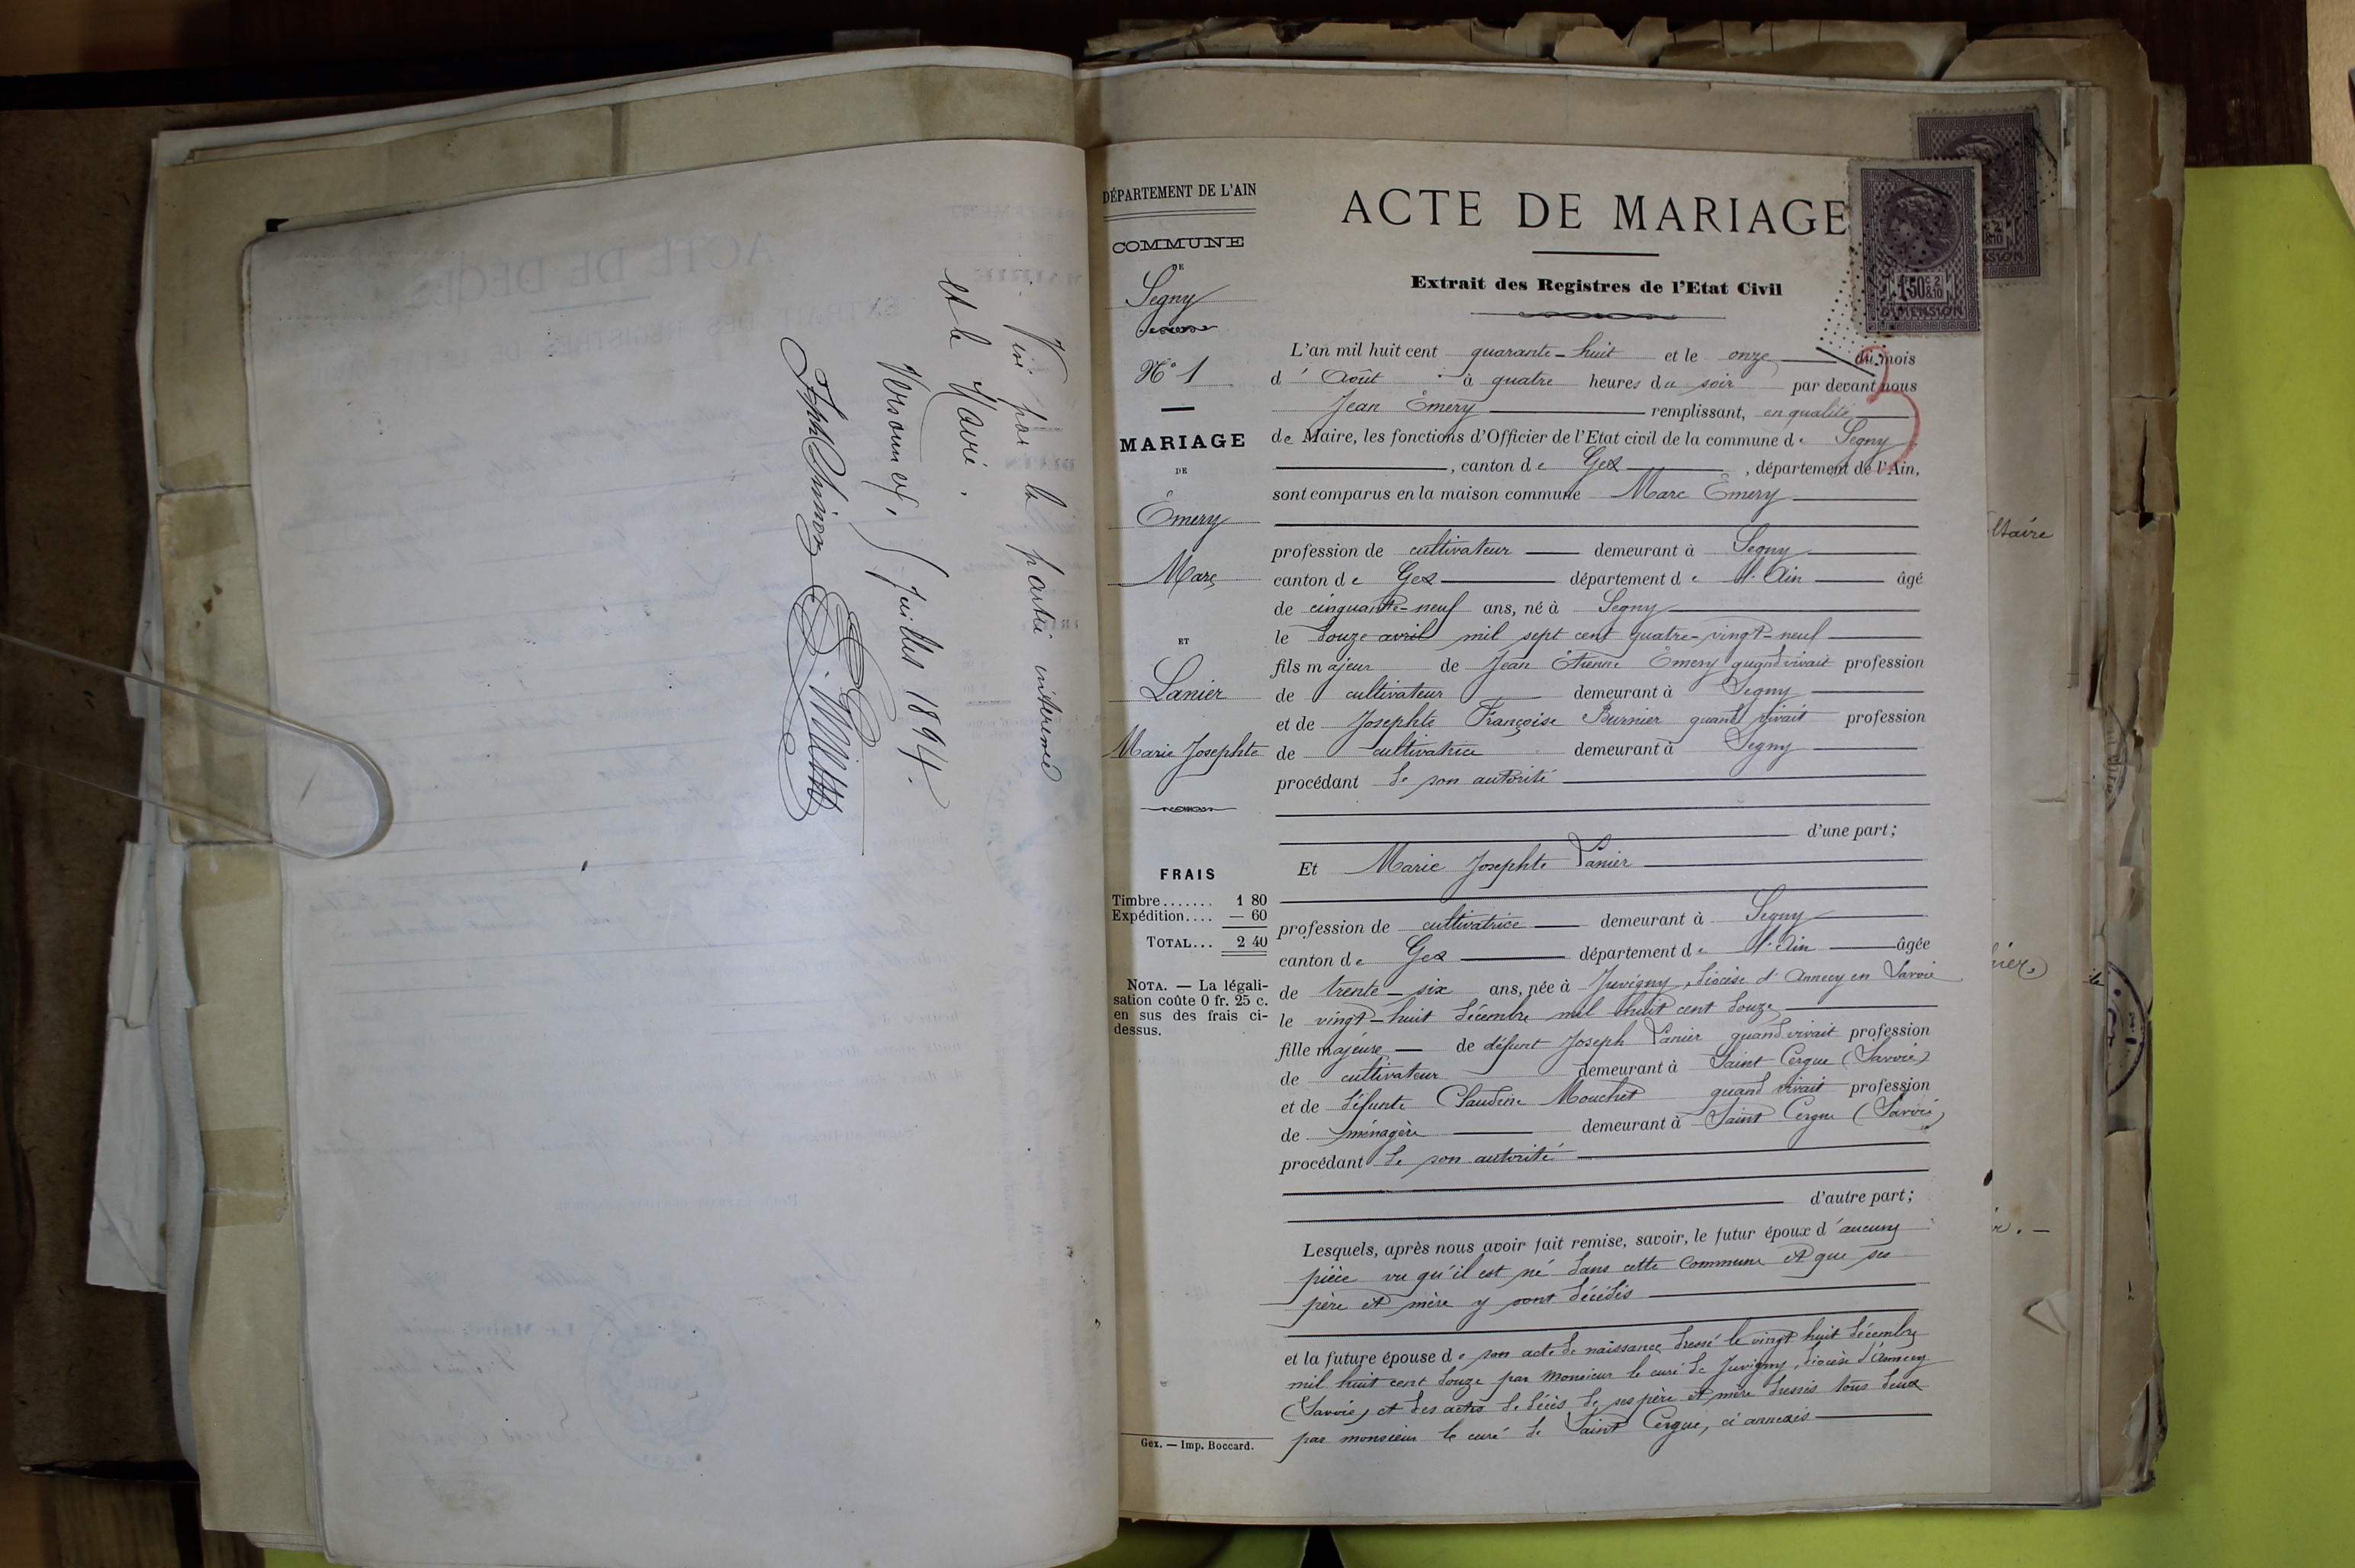 Visé par la partie intéressée
et le Mairie.
Versonnex, juillet 1894.
DÉPARTEMENT DE L'AIN
COMMUNE
DE
Segny
N° 1
MARIAGE
DE
Émery
Marc
ET
Lanier
Marie Josephte
FRAIS
Timbre....... 1 80
Expédition.... — 60
TOTAL... 2 40
NOTA. — La légali-
sation coûte 0 fr. 25 c.
en sus des frais ci-
dessus.
Gex. — Imp. Boccard.
ACTE DE MARIAGE
Extrait des Registres de l'Etat Civil
1f50c 2/10
DIMENSION
L'an mil huit cent quarante-huit et le onze du mois
d'Août à quatre heures du soir par devant nous
Jean Émery remplissant, en qualité
de Maire, les fonctions d'Officier de l'Etat civil de la commune de Segny
, canton de Gex , département de l'Ain,
sont comparus en la maison commune Marc Émery
profession de cultivateur demeurant à Segny
canton de Gex département de l'Ain âgé
de cinquante-neuf ans, né à Segny
le douze avril mil sept cent quatre-vingt-neuf
fils majeur de Jean Étienne Émery quand vivait profession
de cultivateur demeurant à Segny
et de Josephte Françoise Burnier quand vivait profession
de cultivatrice demeurant à Segny
procédant de son autorité
d'une part;
Et Marie Josephte Lanier
profession de cultivatrice demeurant à Segny
canton de Gex département de l'Ain âgée
de trente-six ans, née à Juvigny, diocèse d'Annecy en Savoie
le vingt-huit décembre mil huit cent douze
fille majeure de défunt Joseph Lanier quand vivait profession
de cultivateur demeurant à Saint Cergue (Savoie)
et de défunte Claudine Mouchet quand vivait profession
de ménagère demeurant à Saint Cergue (Savoie)
procédant de son autorité
d'autre part;
Lesquels, après nous avoir fait remise, savoir, le futur époux d'aucune
pièce vu qu'il est né dans cette commune et que ses
père et mère y sont décédés
et la future épouse de son acte de naissance dressé le vingt huit décembre
mil huit cent douze par Monsieur le curé de Juvigny, diocèse d'Annecy
(Savoie) et des actes de décès de ses père et mère dressés tous deux
par monsieur le curé de Saint Cergue, ci annexés